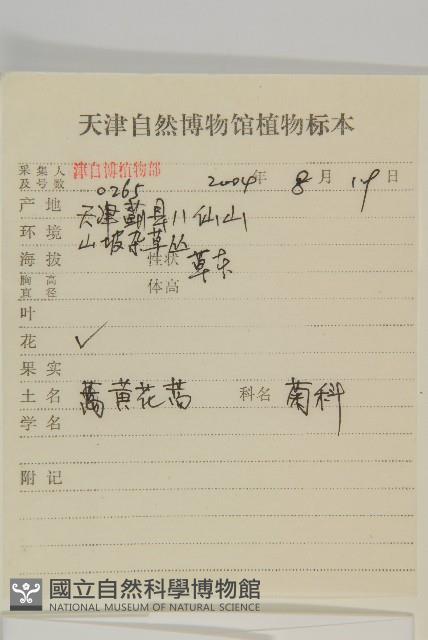 天津自然博物馆植物标本
采集人及号数 津自博植物部 0265 2004年 8月 19日
产地 天津蓟县八仙山
环境 山坡杂草丛
海拔 性状 草本
胸高直径 体高
叶
花 ✓
果实
土名 黄花蒿 科名 菊科
学名
附记
國立自然科學博物館
NATIONAL MUSEUM OF NATURAL SCIENCE